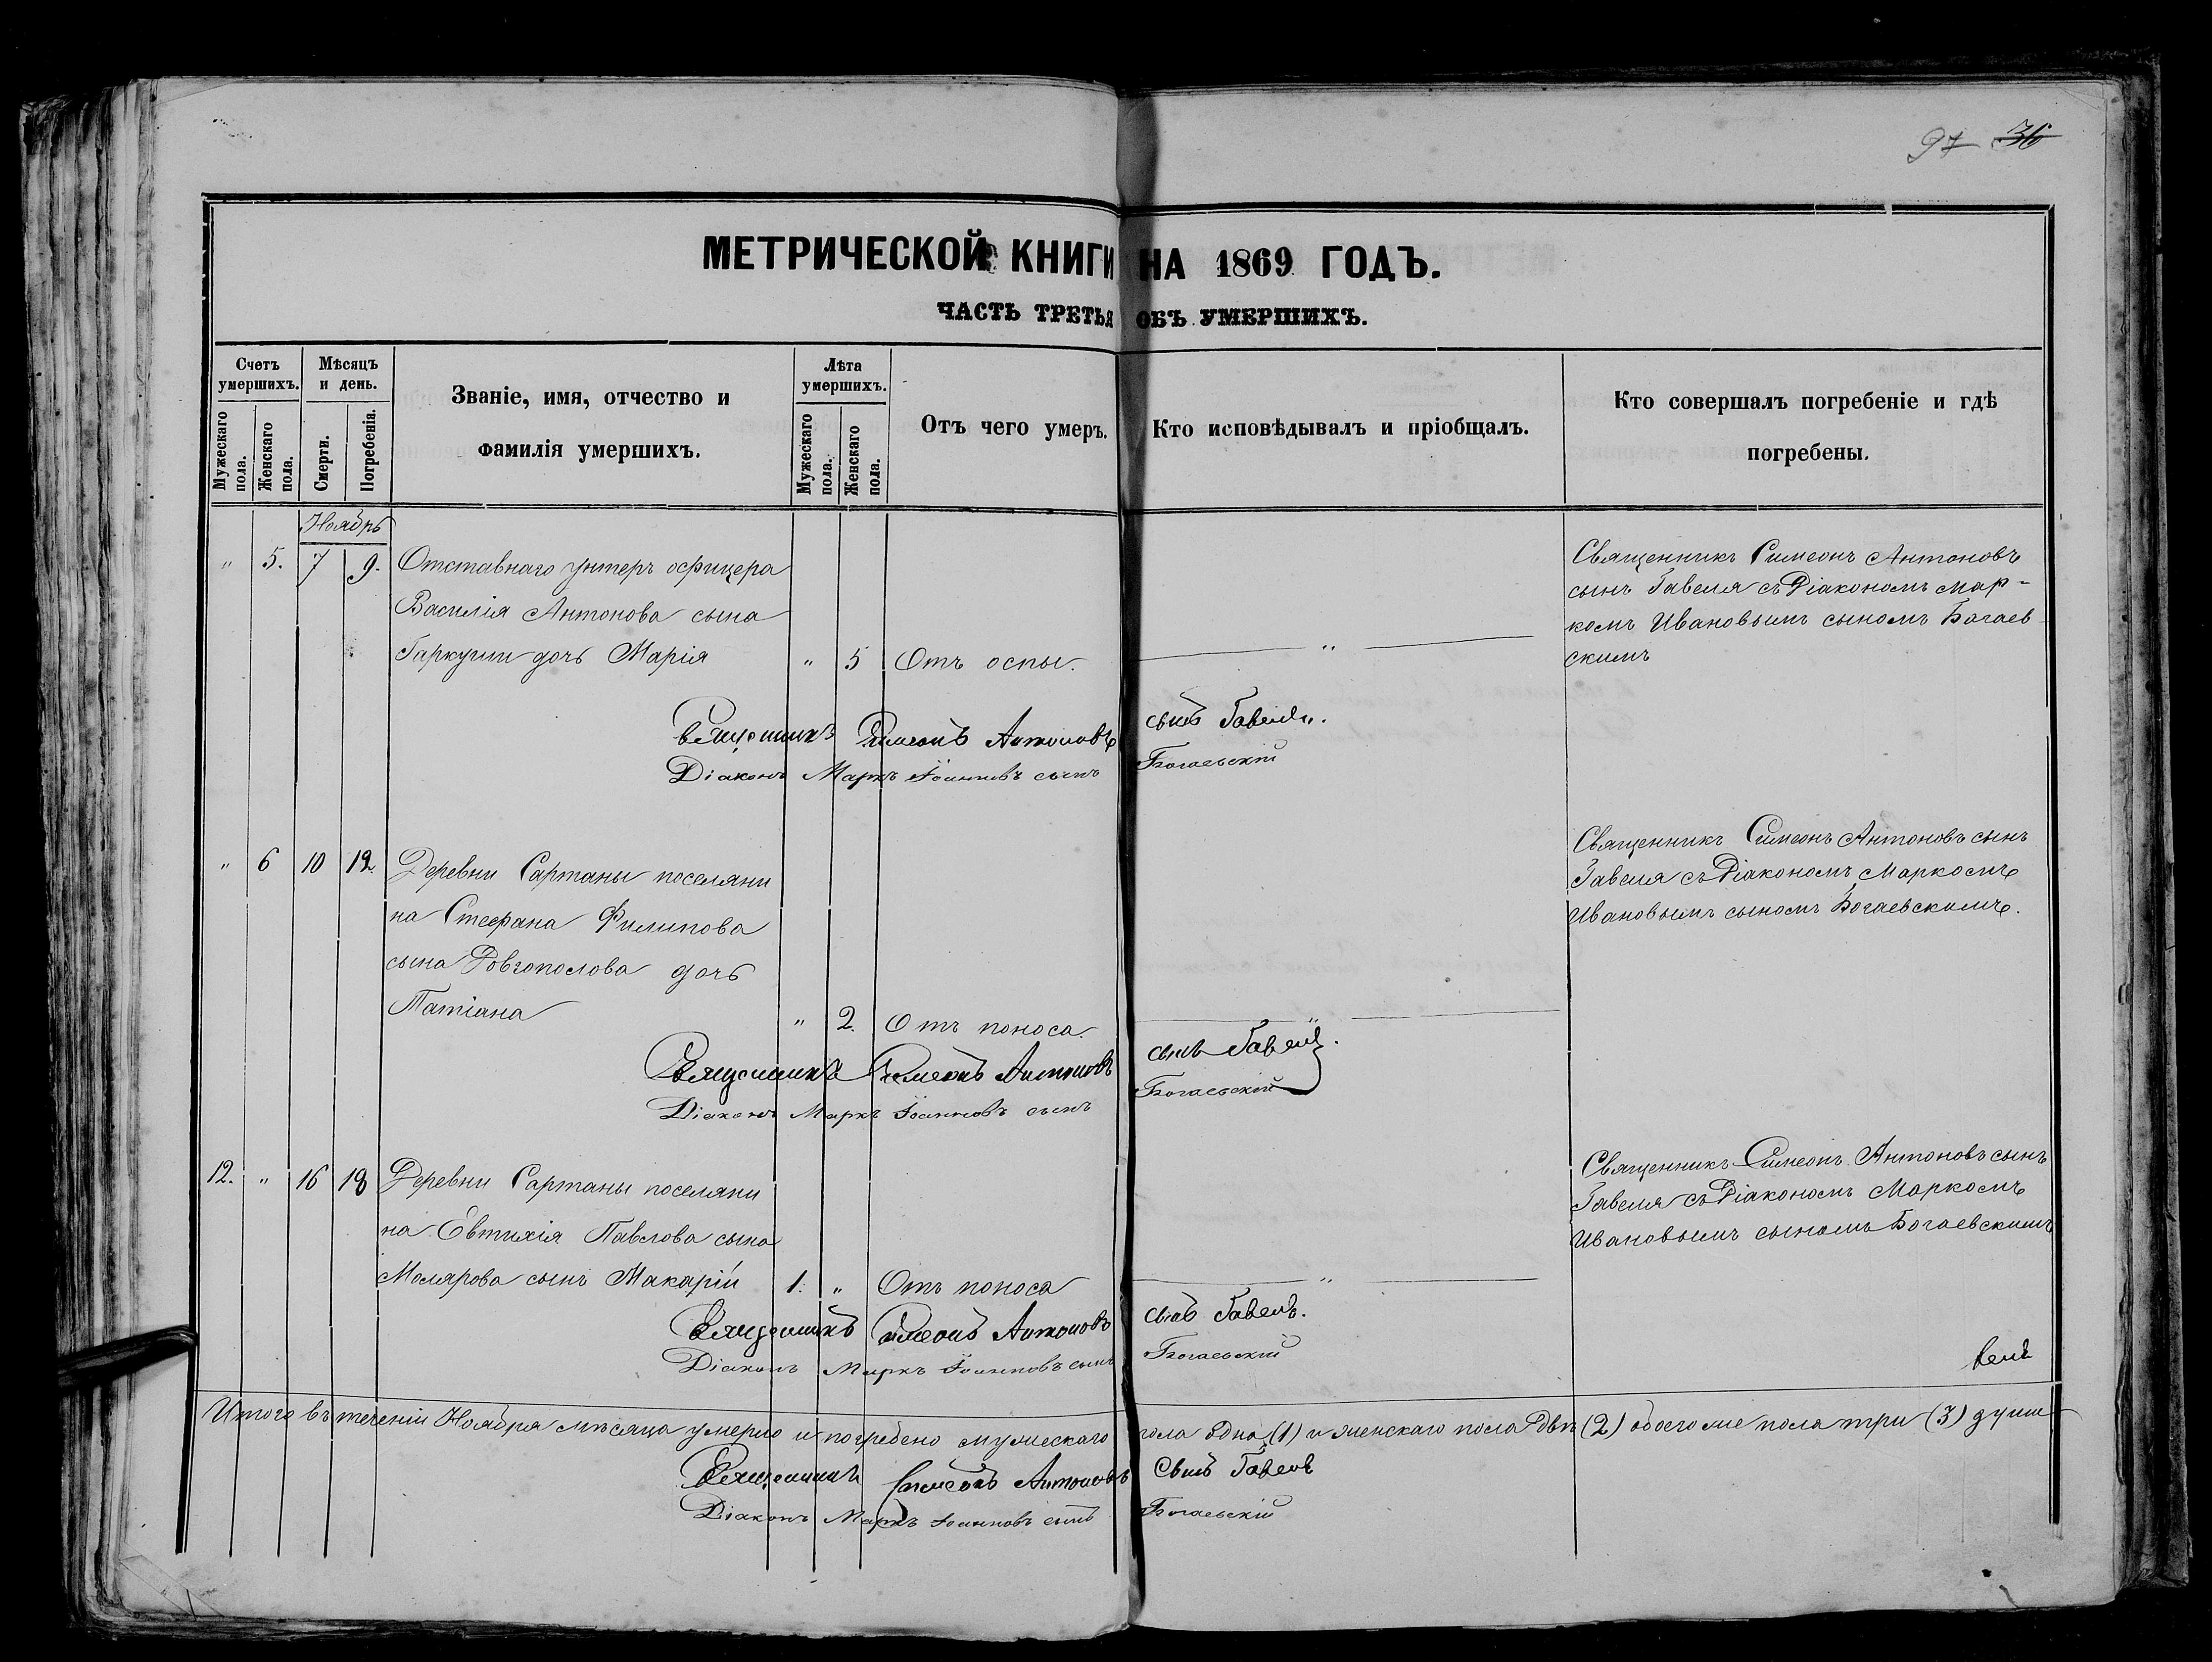 97 36
МЕТРИЧЕСКОЙ КНИГИ НА 1869 ГОДЪ.
ЧАСТЬ ТРЕТЬЯ ОБЪ УМЕРШИХЪ.
Счетъ умершихъ.
Мужескаго пола.
Женскаго пола.
Мѣсяцъ и день.
Смерти.
Погребенія.
Званіе, имя, отчество и
фамилія умершихъ.
Лѣта умершихъ.
Мужескаго пола.
Женскаго пола.
Отъ чего умеръ.
Кто исповѣдывалъ и пріобщалъ.
Кто совершалъ погребеніе и гдѣ
погребены.
Ноябрь
" 5. 7 9. Отставнаго унтеръ офицера
Василія Антонова сына
дочь Марія " 5 Отъ оспы. "
Священникъ Симеонъ Антоновъ
сынъ Гавеля съ Діакономъ Мар-
комъ Ивановымъ сыномъ Богаев-
скимъ
Священникъ Симеонъ Антоновъ сынъ Гавеля.
Діаконъ Маркъ Іоанновъ сынъ Богаевскій
" 6 10 12. Деревни Сартаны поселяни
на Стефана Филипова
сына Довгополова дочь
Татіана " 2. Отъ поноса. "
Священникъ Симеонъ Антоновъ сынъ
Гавеля съ Діакономъ Маркомъ
Ивановымъ сыномъ Богаевскимъ.
Священникъ Симеонъ Антоновъ сынъ Гавеля.
Діаконъ Маркъ Іоанновъ сынъ Богаевскій
12. " 16 18 Деревни Сартаны поселяни
на Евтихія Павлова сына
Молярова сынъ Макарій 1. " Отъ поноса "
Священникъ Симеонъ Антоновъ сынъ
Гавеля съ Діакономъ Маркомъ
Ивановымъ сыномъ Богаевскимъ
Священникъ Симеонъ Антоновъ сынъ
Діаконъ Маркъ Іоанновъ сынъ Богаевскій
Итого въ теченіи Ноября мѣсяца умерло и погребено мужескаго пола одна (1) и женскаго пола двѣ (2) обоего же пола три (3) души
Священникъ Симеонъ Антоновъ Сынъ
Діаконъ Маркъ Іоанновъ сынъ Богаевскій